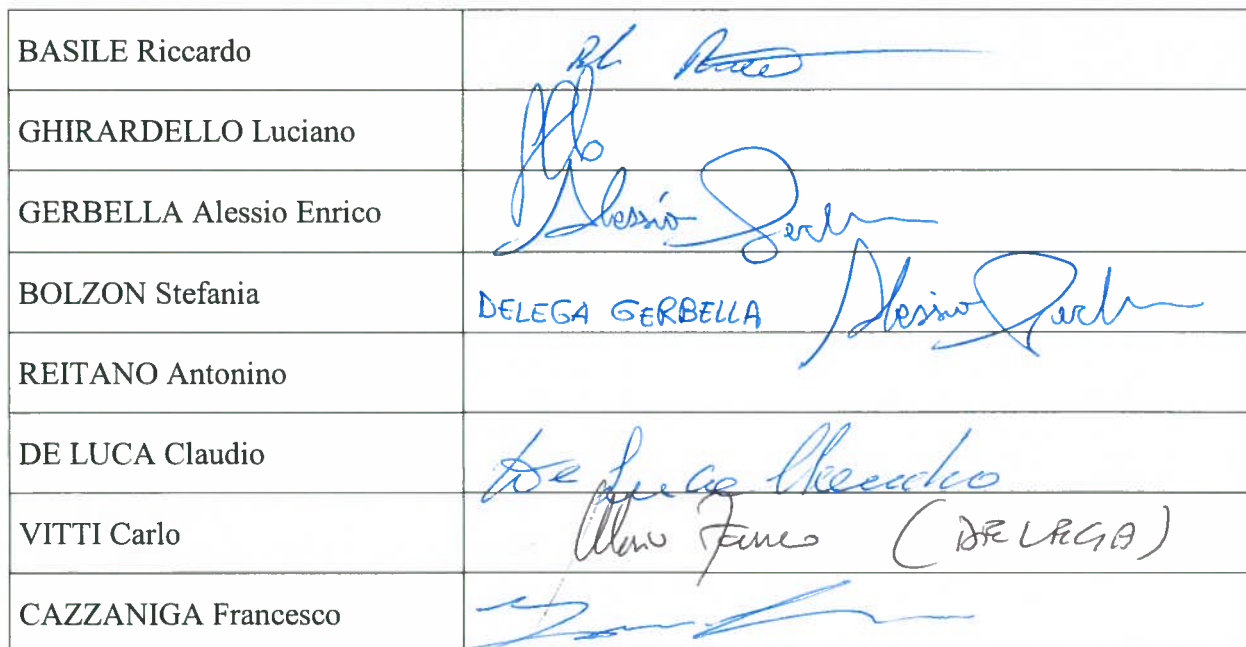 BASILE Riccardo
GHIRARDELLO Luciano
GERBELLA Alessio Enrico Alessio
BOLZON Stefania DELEGA GERBELLA Alessio
REITANO Antonino
DE LUCA Claudio De Luca Claudio
VITTI Carlo (DELEGA)
CAZZANIGA Francesco